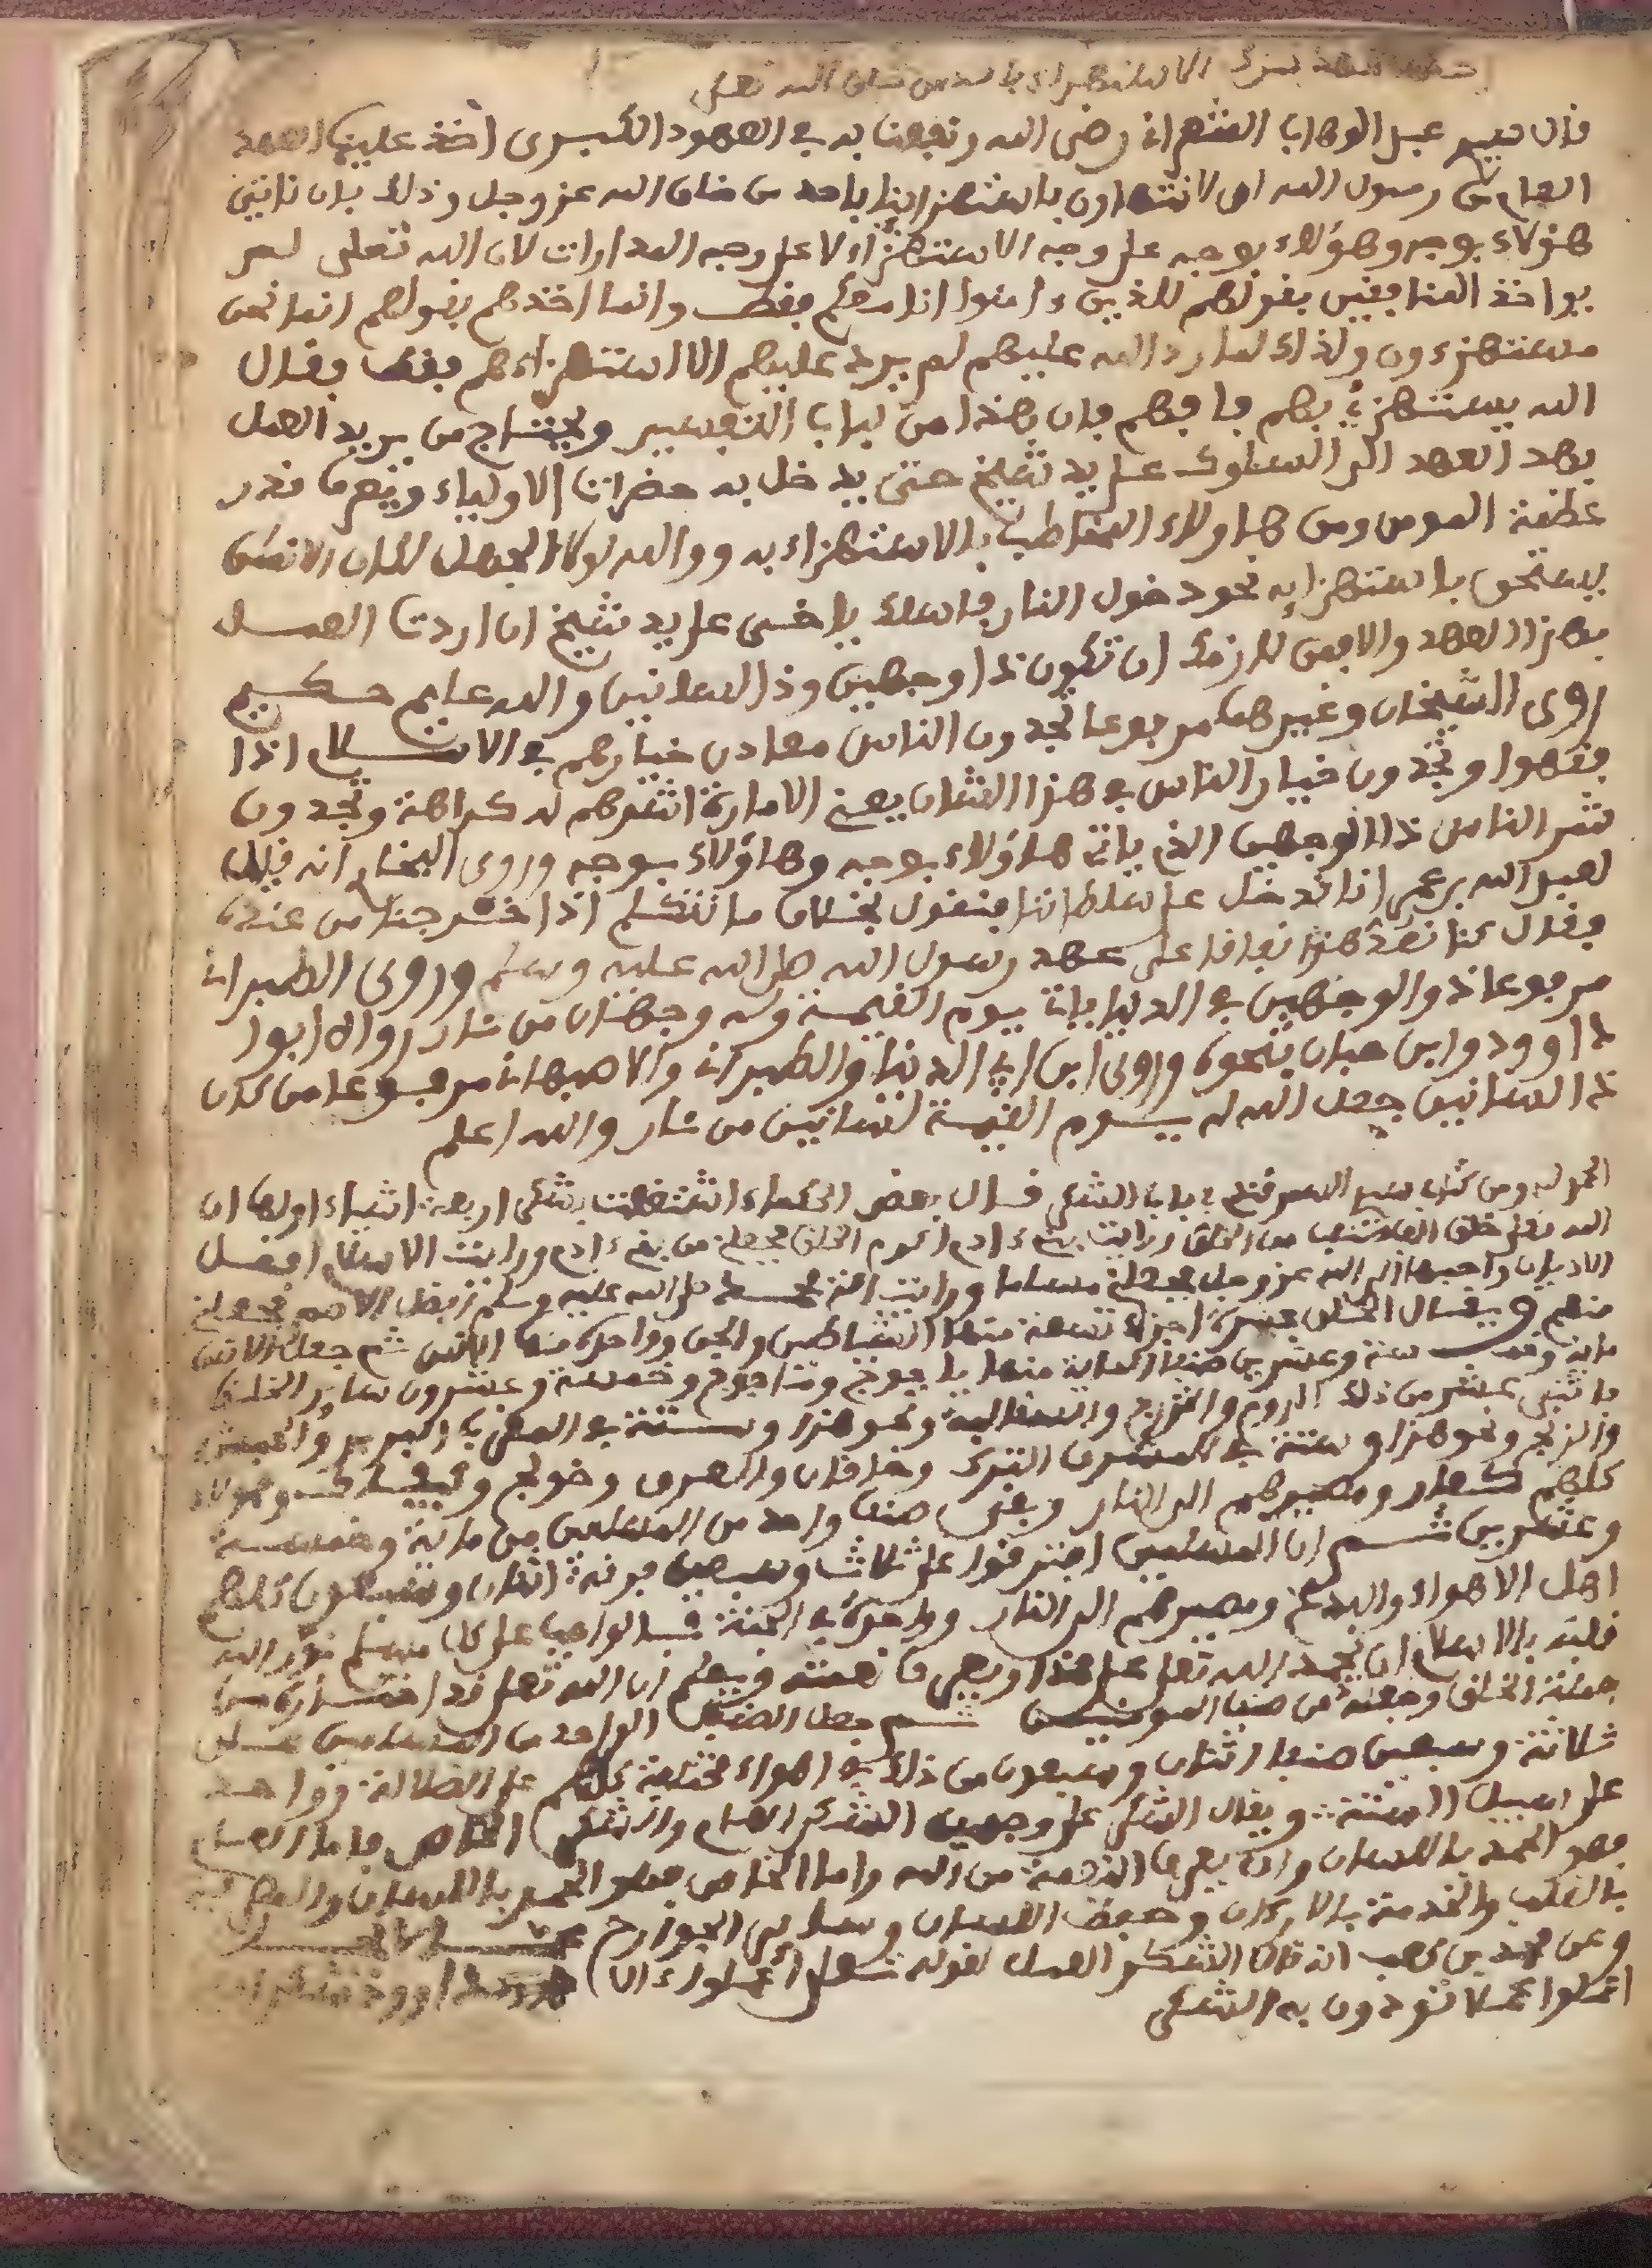 الاستهزاء باحد من خلق الله تعلى
قال سيدي عبد الوهاب الشعراني رضي الله ونفعنا به في العهود الكبرى اخذ علينا العهد
العام من رسول الله ان لا نتهاون باستهزاينا باحد من خلق الله عز وجل وذلك بان ناتي
هؤلاء بوجه وهؤلاء بوجه على وجه الاستهزاء لا على وجه المدارات لان الله تعلى لم
يواخذ المنافقين بقولهم للذين ءامنوا انا معكم فقط وانما اخذهم بقولهم انما نحن
مستهزءون ولذلك لما رد الله عليهم لم يرد عليهم الا استهزاءهم فقط فقال
الله يستهزئ بهم فافهم فان هذا من لباب التفسير ويحتاج من يريد العمل
بهذا العهد الى السلوك على يد شيخ حتى يدخل به حضرات الاولياء ويعرف قدر
عظمة المومن ومن هاولاء المخاطب بالاستهزاء به ووالله لولا الجهل لكان الانسان
يستحق باستهزايه نحو دخول النار فاسلك يا اخي على يد شيخ ان اردت العمل
بهذا العهد والا فمن لازمك ان تكون ذا وجهين وذا لسانين والله عليم حكيم
روى الشيخان وغيرهما مرفوعا تجدون الناس معادن خيارهم في الاسلام اذا
فقهوا وتجدون خيار الناس في هذا الشان يعني الامارة اشدهم له كراهة وتجدون
شر الناس ذا الوجهين الذي ياتي هاؤلاء بوجه وهاؤلاء بوجه وروى البخاري انه قيل
لعبد الله بن عمر انا ندخل على سلطاننا فنقول بخلاف ما نتكلم اذا خرجنا من عنده
فقال كنا نعد هذا نفاقا على عهد رسول الله صلى الله عليه وسلم وروى الطبراني
مرفوعا ذو الوجهين في الدنيا ياتي يوم القيمة وله وجهان من نار رواه ابوا
داوود وابن حبان بنحوه وروى ابن ابي الدنيا والطبراني والاصبهاني مرفوعا من كان
ذا لسانين جعل الله له يوم القيمة لسانين من نار والله اعلم
الحمد لله ومن كتاب السمرقندي باب الشكر قال بعض الحكماء اشتغلت بشكر اربعة اشياء اولها ان
الله تعلى خلق الف صنف من الخلق ورايت بني ءادم اكرم الخلق فجعلني من بني ءادم ورايت الاسلام افضل
الاديان واحبها الى الله عز وجل فجعلني مسلما ورايت امة محمد صلى الله عليه وسلم افضل الامم فجعلني
منهم ويقال الخلق عشرة اجزاء تسعة منها الشياطين والجن وواحدة منها الانس ثم جعل الانس
ماية وخمسة وعشرين صنفا الماية منها ياجوج وماجوج وخمسة وعشرون ساير الخلق
ما ثني عشر من ذلك الروم والخزرج والسقالبة ونحو هذا وستة في المغرب البربر والحبش
والزنج ونحو هذا وستة في المشرق الترك وخاقان والعرف وخولج وهولاء
كلهم كفار ومصيرهم الى النار وبقي صنف واحد من المسلمين من ماية وخمسة
وعشرين ثم ان المسلمين افترقوا على ثلاث وسبعين فرقة اثنان وسبعون كلهم
اهل الاهواء والبدع ومصيرهم الى النار وواحدة في الجنة فالواجب على كل مسلم نور الله
قلبه بالاسلام ان يحمد الله تعلى على هذا ويعرف نعمته ويعلم ان الله تعلى قد اختاره من
جملة الخلق وجعله من صنف المومنين ثم جعل الصنف الواحد من المسلمين على
ثلاثة وسبعين صنفا اثنان وسبعون من ذلك في اهواء مختلفة كلهم على الضلالة وواحد
على سبيل السنة ويقال الشكر على وجهين الشكر العام والشكر الخاص فاما العام
فهو الحمد باللسان وان يعرف النعمة من الله واما الخاص فهو الحمد باللسان والمعرفة
بالقلب والخدمة بالاركان وحفظ اللسان وساير الجوارح عما لا يحل
وعن محمد بن كعب انه قال الشكر العمل لقوله تعلى اعملوا ءال داوود شكرا
اعملوا عملا تودون به الشكر